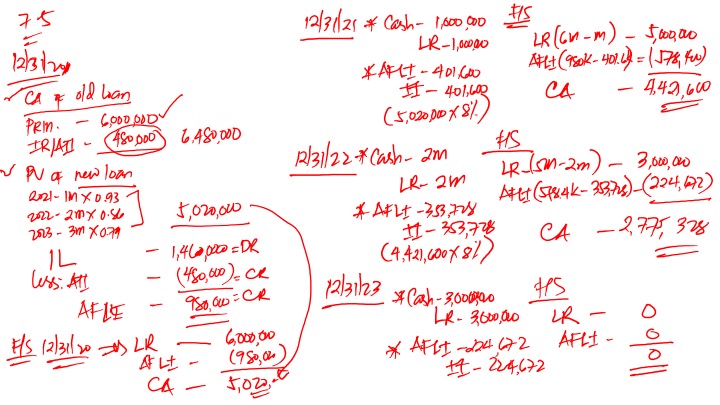 7-5
12/31/20
✓ CA of old loan ✓
Prin. - 6,000,000
IR/AII - 480,000 6,480,000
✓ PV of new loan
2021 - 1M X 0.93
2022 - 2M X 0.86
2023 - 3M X 0.79
5,020,000
IL - 1,460,000 = DR
Less: AII - (480,000) = CR
AFUI - 980,000 = CR
F/S 12/31/20 => LR - 6,000,000
AFUI - (980,000)
CA - 5,020,
12/31/21 * Cash - 1,000,000
LR - 1,000,000
* AFUI - 401,600
II - 401,600
(5,020,000 X 8%)
F/S
LR (6M - M) - 5,000,000
AFUI (980K - 401.6) = (578,400)
CA - 4,421,600
12/31/22 * Cash - 2M
LR - 2M
* AFUI - 353,728
II - 353,728
(4,421,600 X 8%)
F/S
LR - (5M - 2M) - 3,000,000
AFUI (578.4K - 353,728) - (224,672)
CA - 2,775,328
12/31/23 * Cash - 3,000,000
LR - 3,000,000
* AFUI - 224,672
II - 224,672
F/S
LR - 0
AFUI - 0
0